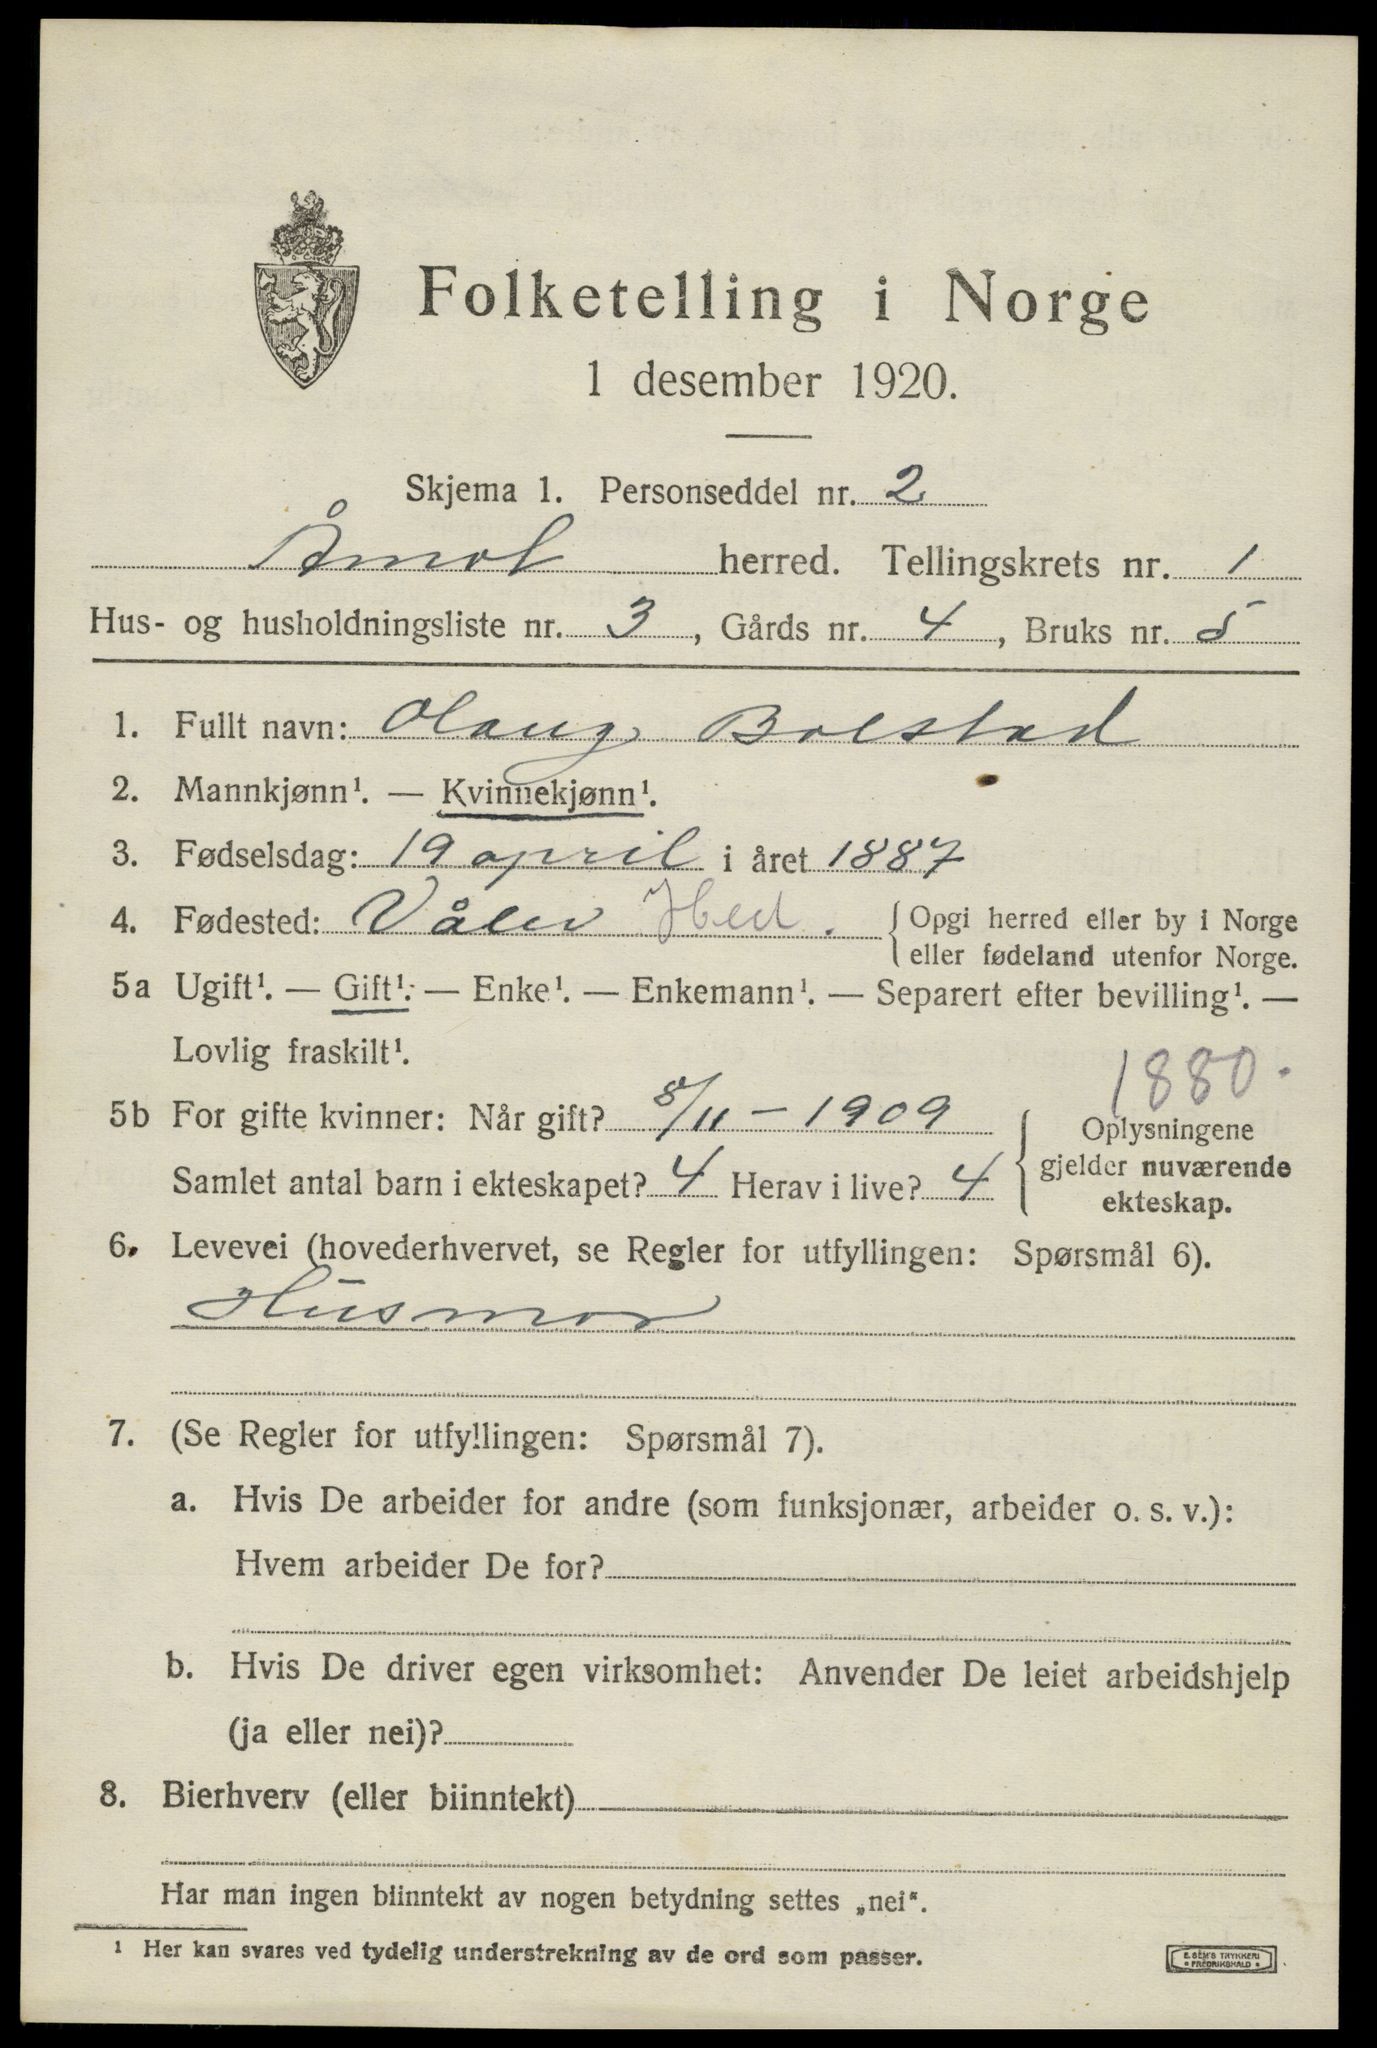 Folketelling i Norge
1 desember 1920.
Skjema 1. Personseddel nr. 2
Åmot herred. Tellingskrets nr. 1
Hus- og husholdningsliste nr. 3, Gårds nr. 4, Bruks nr. 5
1. Fullt navn: Olaug Bolstad
2. Mannkjønn¹. — Kvinnekjønn¹.
3. Fødselsdag: 19 april i året 1887
4. Fødested: Våler Hed. { Opgi herred eller by i Norge
eller fødeland utenfor Norge.
5a Ugift¹. — Gift¹. — Enke¹. — Enkemann¹. — Separert efter bevilling¹. —
Lovlig fraskilt¹.
1880.
5b For gifte kvinner: Når gift? 8/11 - 1909
Samlet antal barn i ekteskapet? 4 Herav i live? 4
Oplysningene
gjelder nuværende
ekteskap.
6. Levevei (hovederhvervet, se Regler for utfyllingen: Spørsmål 6).
Husmor
7. (Se Regler for utfyllingen: Spørsmål 7).
a. Hvis De arbeider for andre (som funksjonær, arbeider o. s. v.):
Hvem arbeider De for?
b. Hvis De driver egen virksomhet: Anvender De leiet arbeidshjelp
(ja eller nei)?
8. Bierhverv (eller biinntekt)
Har man ingen biinntekt av nogen betydning settes „nei“.
¹ Her kan svares ved tydelig understrekning av de ord som passer.
E. SEM'S TRYKKERI
FREDRIKSHALD